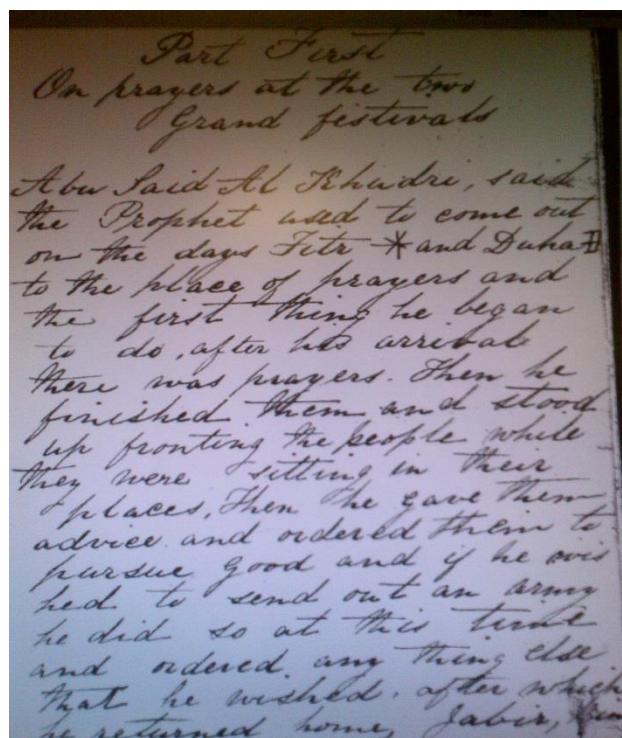 Part First
On prayers at the two
Grand festivals
Abu Said Al Khudri, said
the Prophet used to come out
on the days Fitr * and Duha ‡
to the place of prayers and
the first thing he began
to do, after his arrival
there was prayers. Then he
finished them and stood
up fronting the people while
they were sitting in their
places, Then he gave them
advice and ordered them to
pursue good and if he wis
hed to send out an army
he did so at this time
and ordered any thing else
that he wished. after which
he returned home, Jabir,